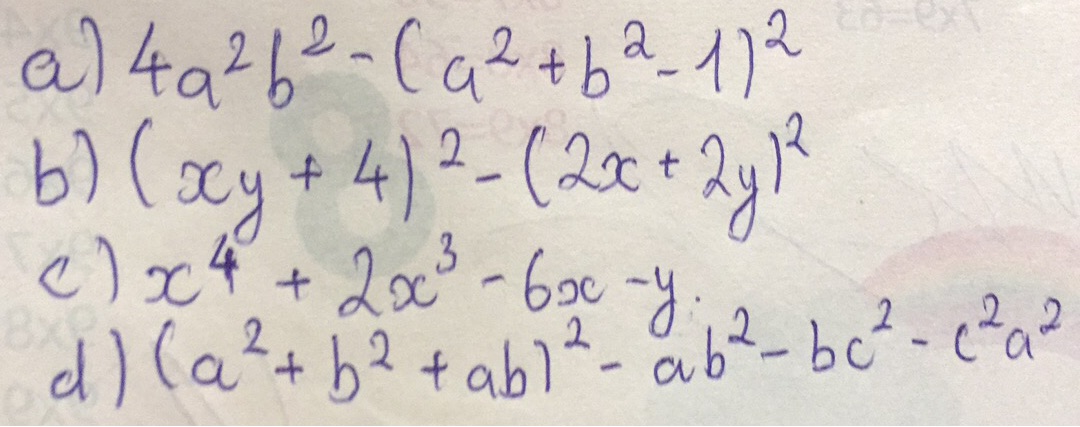 a) 4a²b² - (a² + b² - 1)²
b) (xy + 4)² - (2x + 2y)²
c) x⁴ + 2x³ - 6x - y.
d) (a² + b² + ab)² - ab² - bc² - c²a²